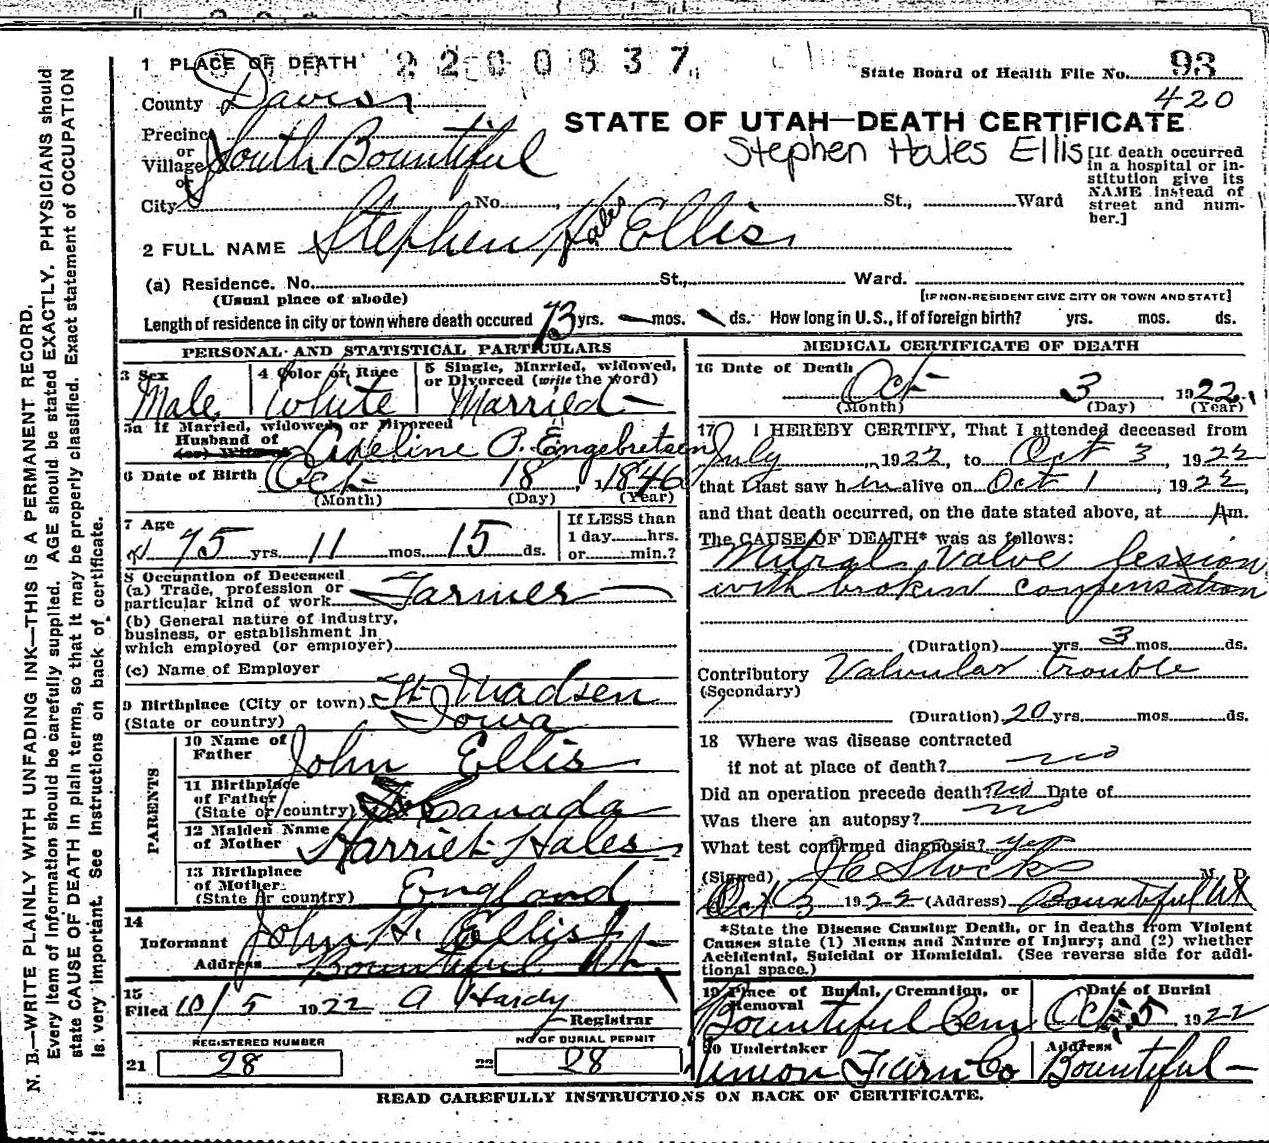 1 PLACE OF DEATH 2200837
State Board of Health File No. 93
County Davis 420
STATE OF UTAH—DEATH CERTIFICATE
Precinct
or
Village South Bountiful
or
Stephen Hales Ellis
[If death occurred in a hospital or institution give its NAME instead of street and number.]
City No. St., Ward
2 FULL NAME Stephen Hales Ellis
(a) Residence. No. St., Ward.
(Usual place of abode) [IF NON-RESIDENT GIVE CITY OR TOWN AND STATE]
Length of residence in city or town where death occured 73 yrs. — mos. ds. How long in U.S., if of foreign birth? yrs. mos. ds.
PERSONAL AND STATISTICAL PARTICULARS
3 Sex Male
4 Color or Race White
5 Single, Married, widowed, or Divorced (write the word) Married
5a If Married, widowed or Divorced
Husband of
(or) Wife of Adeline P. Engebretsen
6 Date of Birth Oct 18, 1846
(Month) (Day) (Year)
7 Age 75 yrs. 11 mos. 15 ds.
If LESS than
1 day......hrs.
or......min.?
8 Occupation of Deceased
(a) Trade, profession or
particular kind of work Farmer
(b) General nature of Industry,
business, or establishment in
which employed (or employer)
(c) Name of Employer
9 Birthplace (City or town) Ft. Madsen
(State or country) Iowa
PARENTS
10 Name of Father John Ellis
11 Birthplace
of Father
(State or country) Canada
12 Maiden Name
of Mother Harriet Hales
13 Birthplace
of Mother
(State or country) England
14
Informant John H. Ellis
Address Bountiful Ut
15
Filed 10/5 1922 A Hardy
Registrar
REGISTERED NUMBER
21 28
NO OF BURIAL PERMIT
22 28
MEDICAL CERTIFICATE OF DEATH
16 Date of Death Oct 3 1922
(Month) (Day) (Year)
17 I HEREBY CERTIFY, That I attended deceased from
July, 1922, to Oct 3, 1922
that I last saw him alive on Oct 1, 1922,
and that death occurred, on the date stated above, at Am.
The CAUSE OF DEATH* was as follows:
Mitral Valve lession
with brokin compensation
(Duration) yrs. 3 mos. ds.
Contributory Valvular trouble
(Secondary)
(Duration) 20 yrs. mos. ds.
18 Where was disease contracted
if not at place of death? no
Did an operation precede death? no Date of
Was there an autopsy? no
What test confirmed diagnosis? yes
(Signed) J C Stocks M. D.
Oct 3 1922 (Address) Bountiful Ut
*State the Disease Causing Death, or in deaths from Violent
Causes state (1) Means and Nature of Injury; and (2) whether
Accidental, Suicidal or Homicidal. (See reverse side for addi-
tional space.)
19 Place of Burial, Cremation, or Removal Bountiful Cem
Date of Burial Oct 1922
20 Undertaker Union Furn Co
Address Bountiful
READ CAREFULLY INSTRUCTIONS ON BACK OF CERTIFICATE.
N. B.—WRITE PLAINLY WITH UNFADING INK—THIS IS A PERMANENT RECORD.
Every item of information should be carefully supplied. AGE should be stated EXACTLY. PHYSICIANS should
state CAUSE OF DEATH in plain terms, so that it may be properly classified. Exact statement of OCCUPATION
is very important. See instructions on back of certificate.